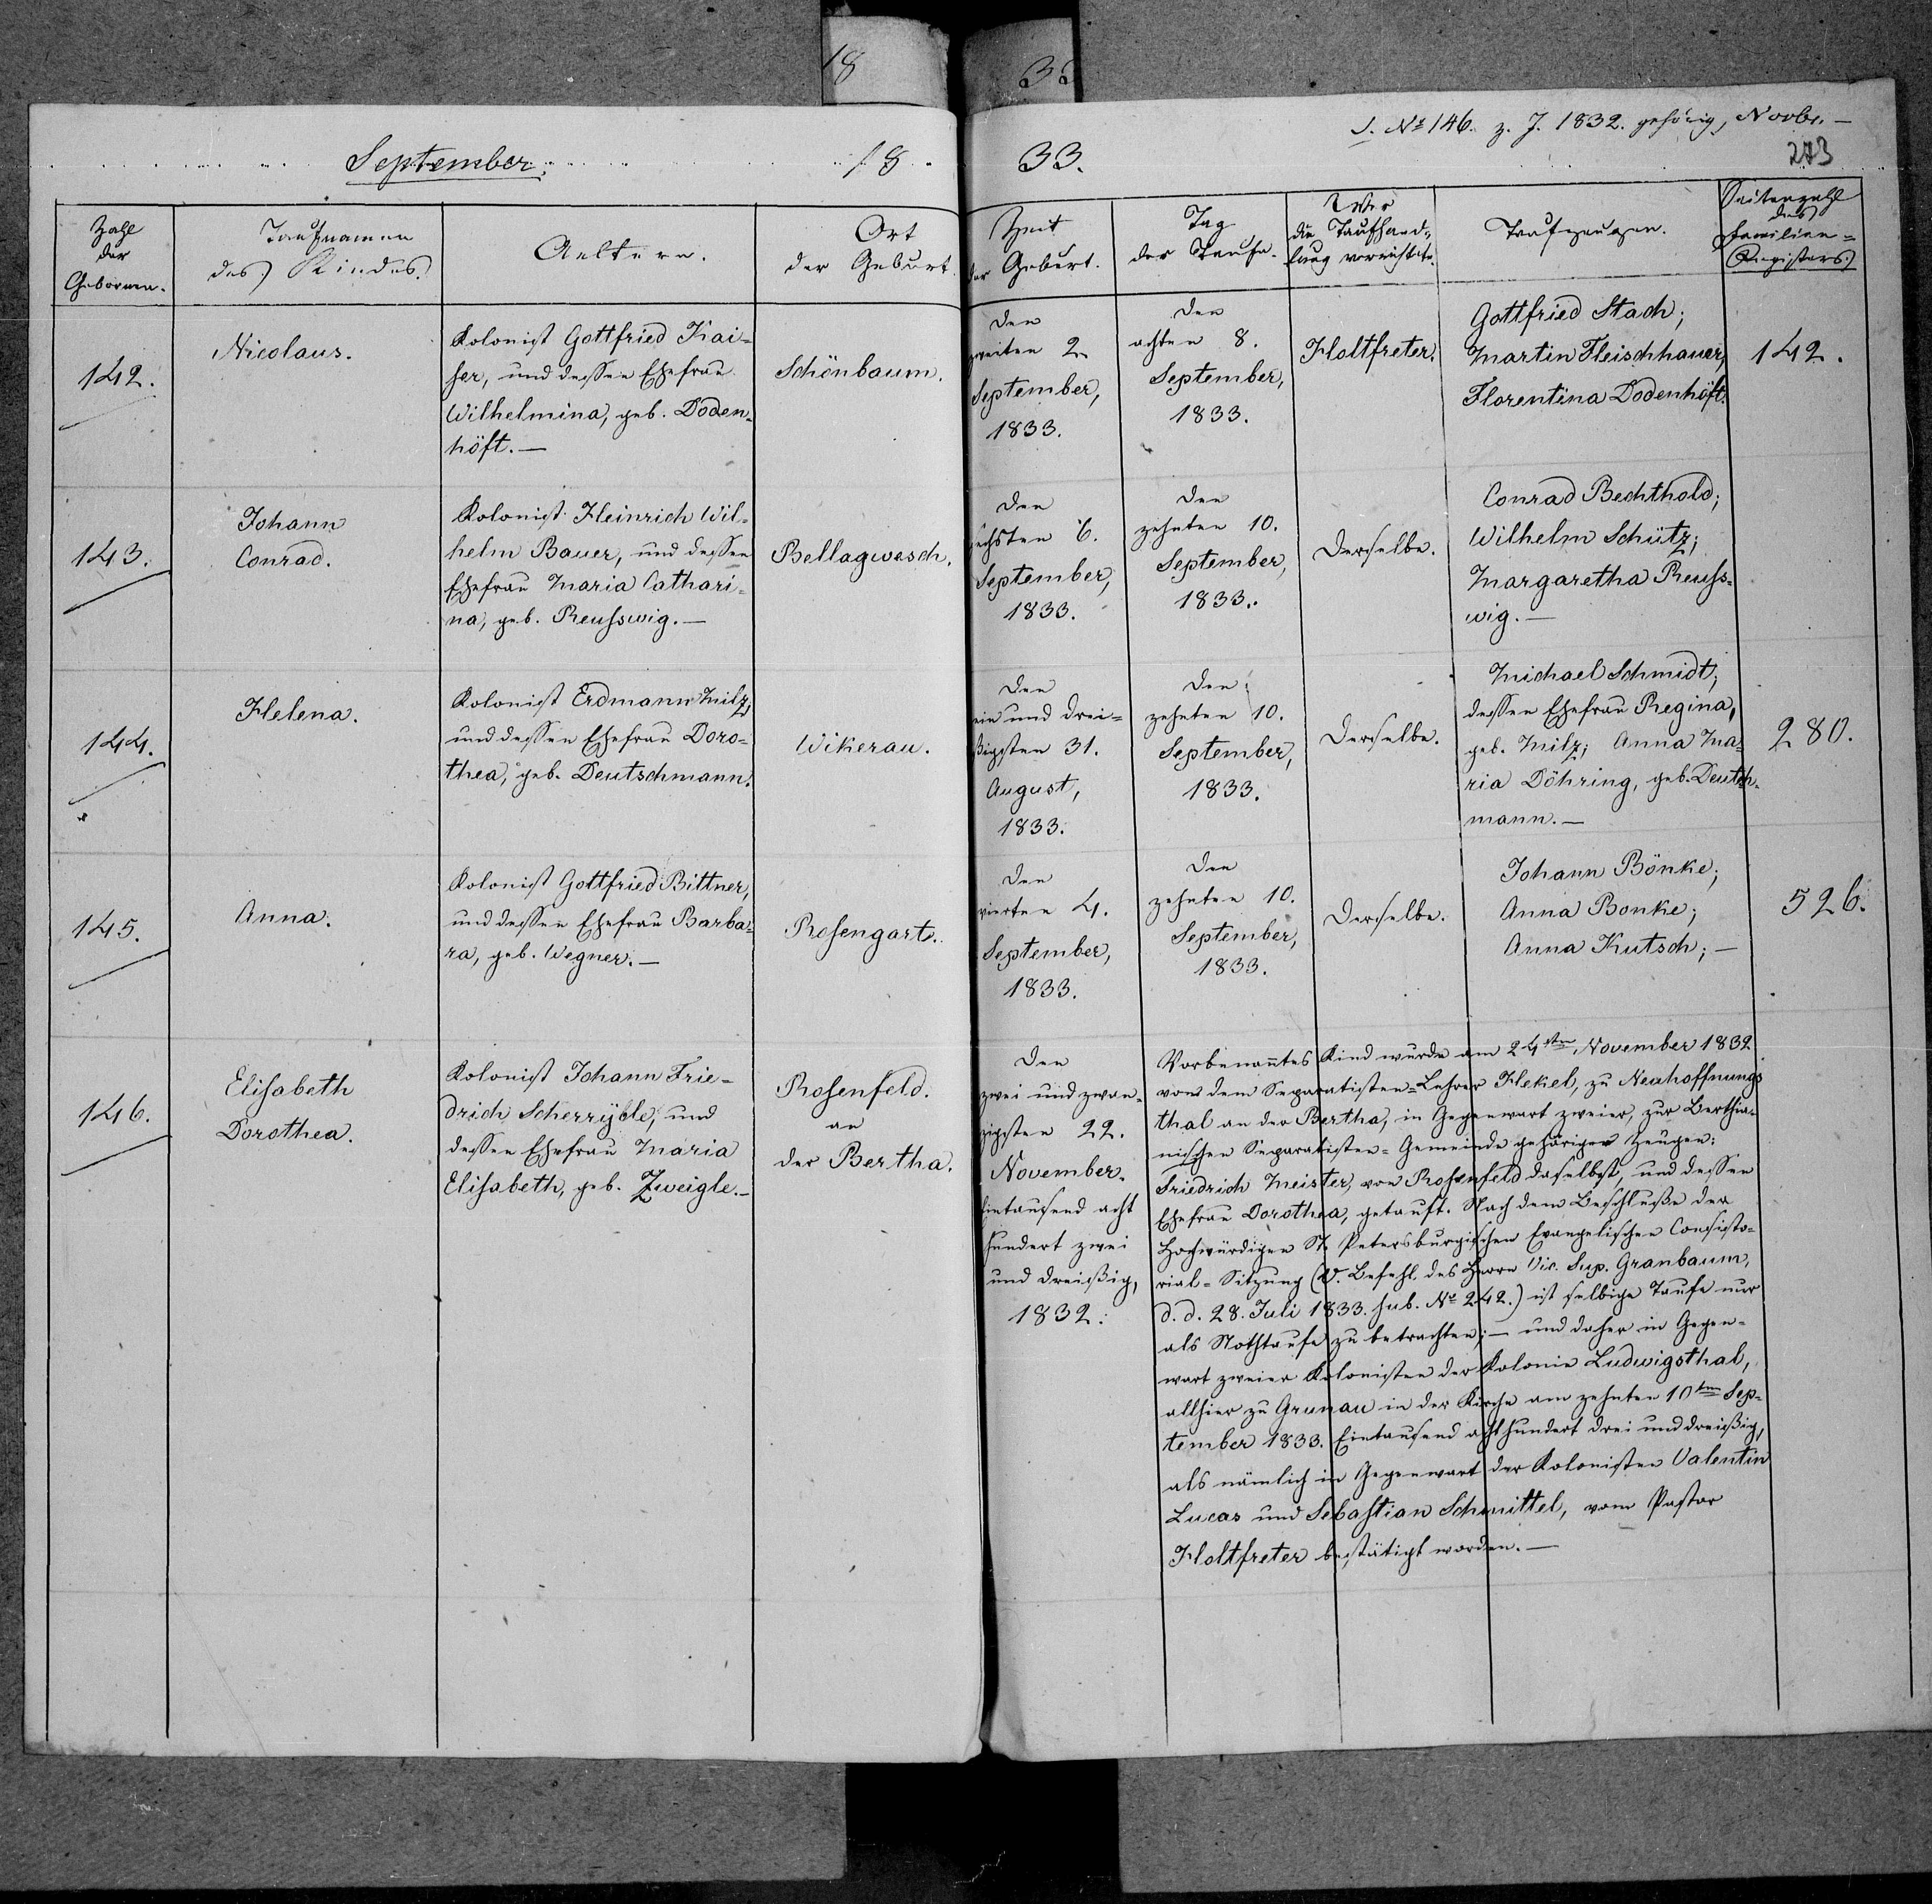 18 33
S. № 146. z. J. 1832. gehörig, Novbr. —
273
September. 18 33.
Zahl
der
Gebornen.
Taufnamen
des Kindes.
Aeltern.
Ort
der Geburt.
Zeit
der Geburt.
Tag
der Taufe.
Wer
die Taufhand-
lung verrichtete.
Taufzeugen.
Seitenzahl
des
Familien=
Registers.
142.
Nicolaus.
Kolonist Gottfried Kai-
ser, und dessen Ehefrau
Wilhelmina, geb. Doden-
höft. —
Schönbaum.
Den
zweiten 2.
September,
1833.
Den
achten 8.
September,
1833.
Holtfreter.
Gottfried Stach;
Martin Fleischhauer,
Florentina Dodenhöft.
142.
143.
Johann
Conrad.
Kolonist Heinrich Wil-
helm Bauer, und dessen
Ehefrau Maria Cathari-
na, geb. Reusswig. —
Bellagwesch.
Den
sechsten 6.
September,
1833.
Den
zehnten 10.
September,
1833.
Derselbe.
Conrad Bechthold;
Wilhelm Schütz;
Margaretha Reuss-
wig. —
144.
Helena.
Kolonist Erdmann Milz,
und dessen Ehefrau Doro-
thea, geb. Deutschmann.
Wikerau.
Den
ein und drei-
ßigsten 31.
August,
1833.
Den
zehnten 10.
September,
1833.
Derselbe.
Michael Schmidt;
dessen Ehefrau Regina,
geb. Milz; Anna Ma-
ria Döhring, geb. Deutsch-
mann. —
280.
145.
Anna.
Kolonist Gottfried Bittner,
und dessen Ehefrau Barba-
ra, geb. Wegner. —
Rosengart.
Den
vierten 4.
September,
1833.
Den
zehnten 10.
September,
1833.
Derselbe.
Johann Bönke;
Anna Bonke;
Anna Kutsch; —
526.
146.
Elisabeth
Dorothea.
Kolonist Johann Frie-
drich Scherryble, und
dessen Ehefrau Maria
Elisabeth, geb. Zweigle. —
Rosenfeld.
an
der Bertha.
Den
zwei und zwan-
zigsten 22.
November.
Eintausend acht
hundert zwei
und dreißig,
1832.
Vorbenanntes Kind wurde am 24sten November 1832
von dem Separatisten=Lehrer Hekel, zu Neuhoffnungs
thal an der Bertha, in Gegenwart zweier, zur Berthia-
nischen Separatisten=Gemeinde gehörigen Zeugen:
Friedrich Meister, von Rosenfeld daselbst, und dessen
Ehefrau Dorothea, getauft. Nach dem Beschluße der
Hochwürdigen St. Petersburgischen Evangelischen Consisto-
rial=Sitzung (V. Befehl des Herrn Vic. Sup. Granbaum,
d. d. 28. Juli 1833. sub. № 242.) ist selbige Taufe nur
als Nothtaufe zu betrachten; — und daher in Gegen-
wart zweier Kolonisten der Kolonie Ludwigsthal,
allhier zu Grunau in der Kirche am zehnten 10ten Sep-
tember 1833. Eintausend achthundert drei und dreißig,
als nämlich in Gegenwart der Kolonisten Valentin
Lucas und Sebastian Schmittel, vom Pastor
Holtfreter bestätigt worden. —